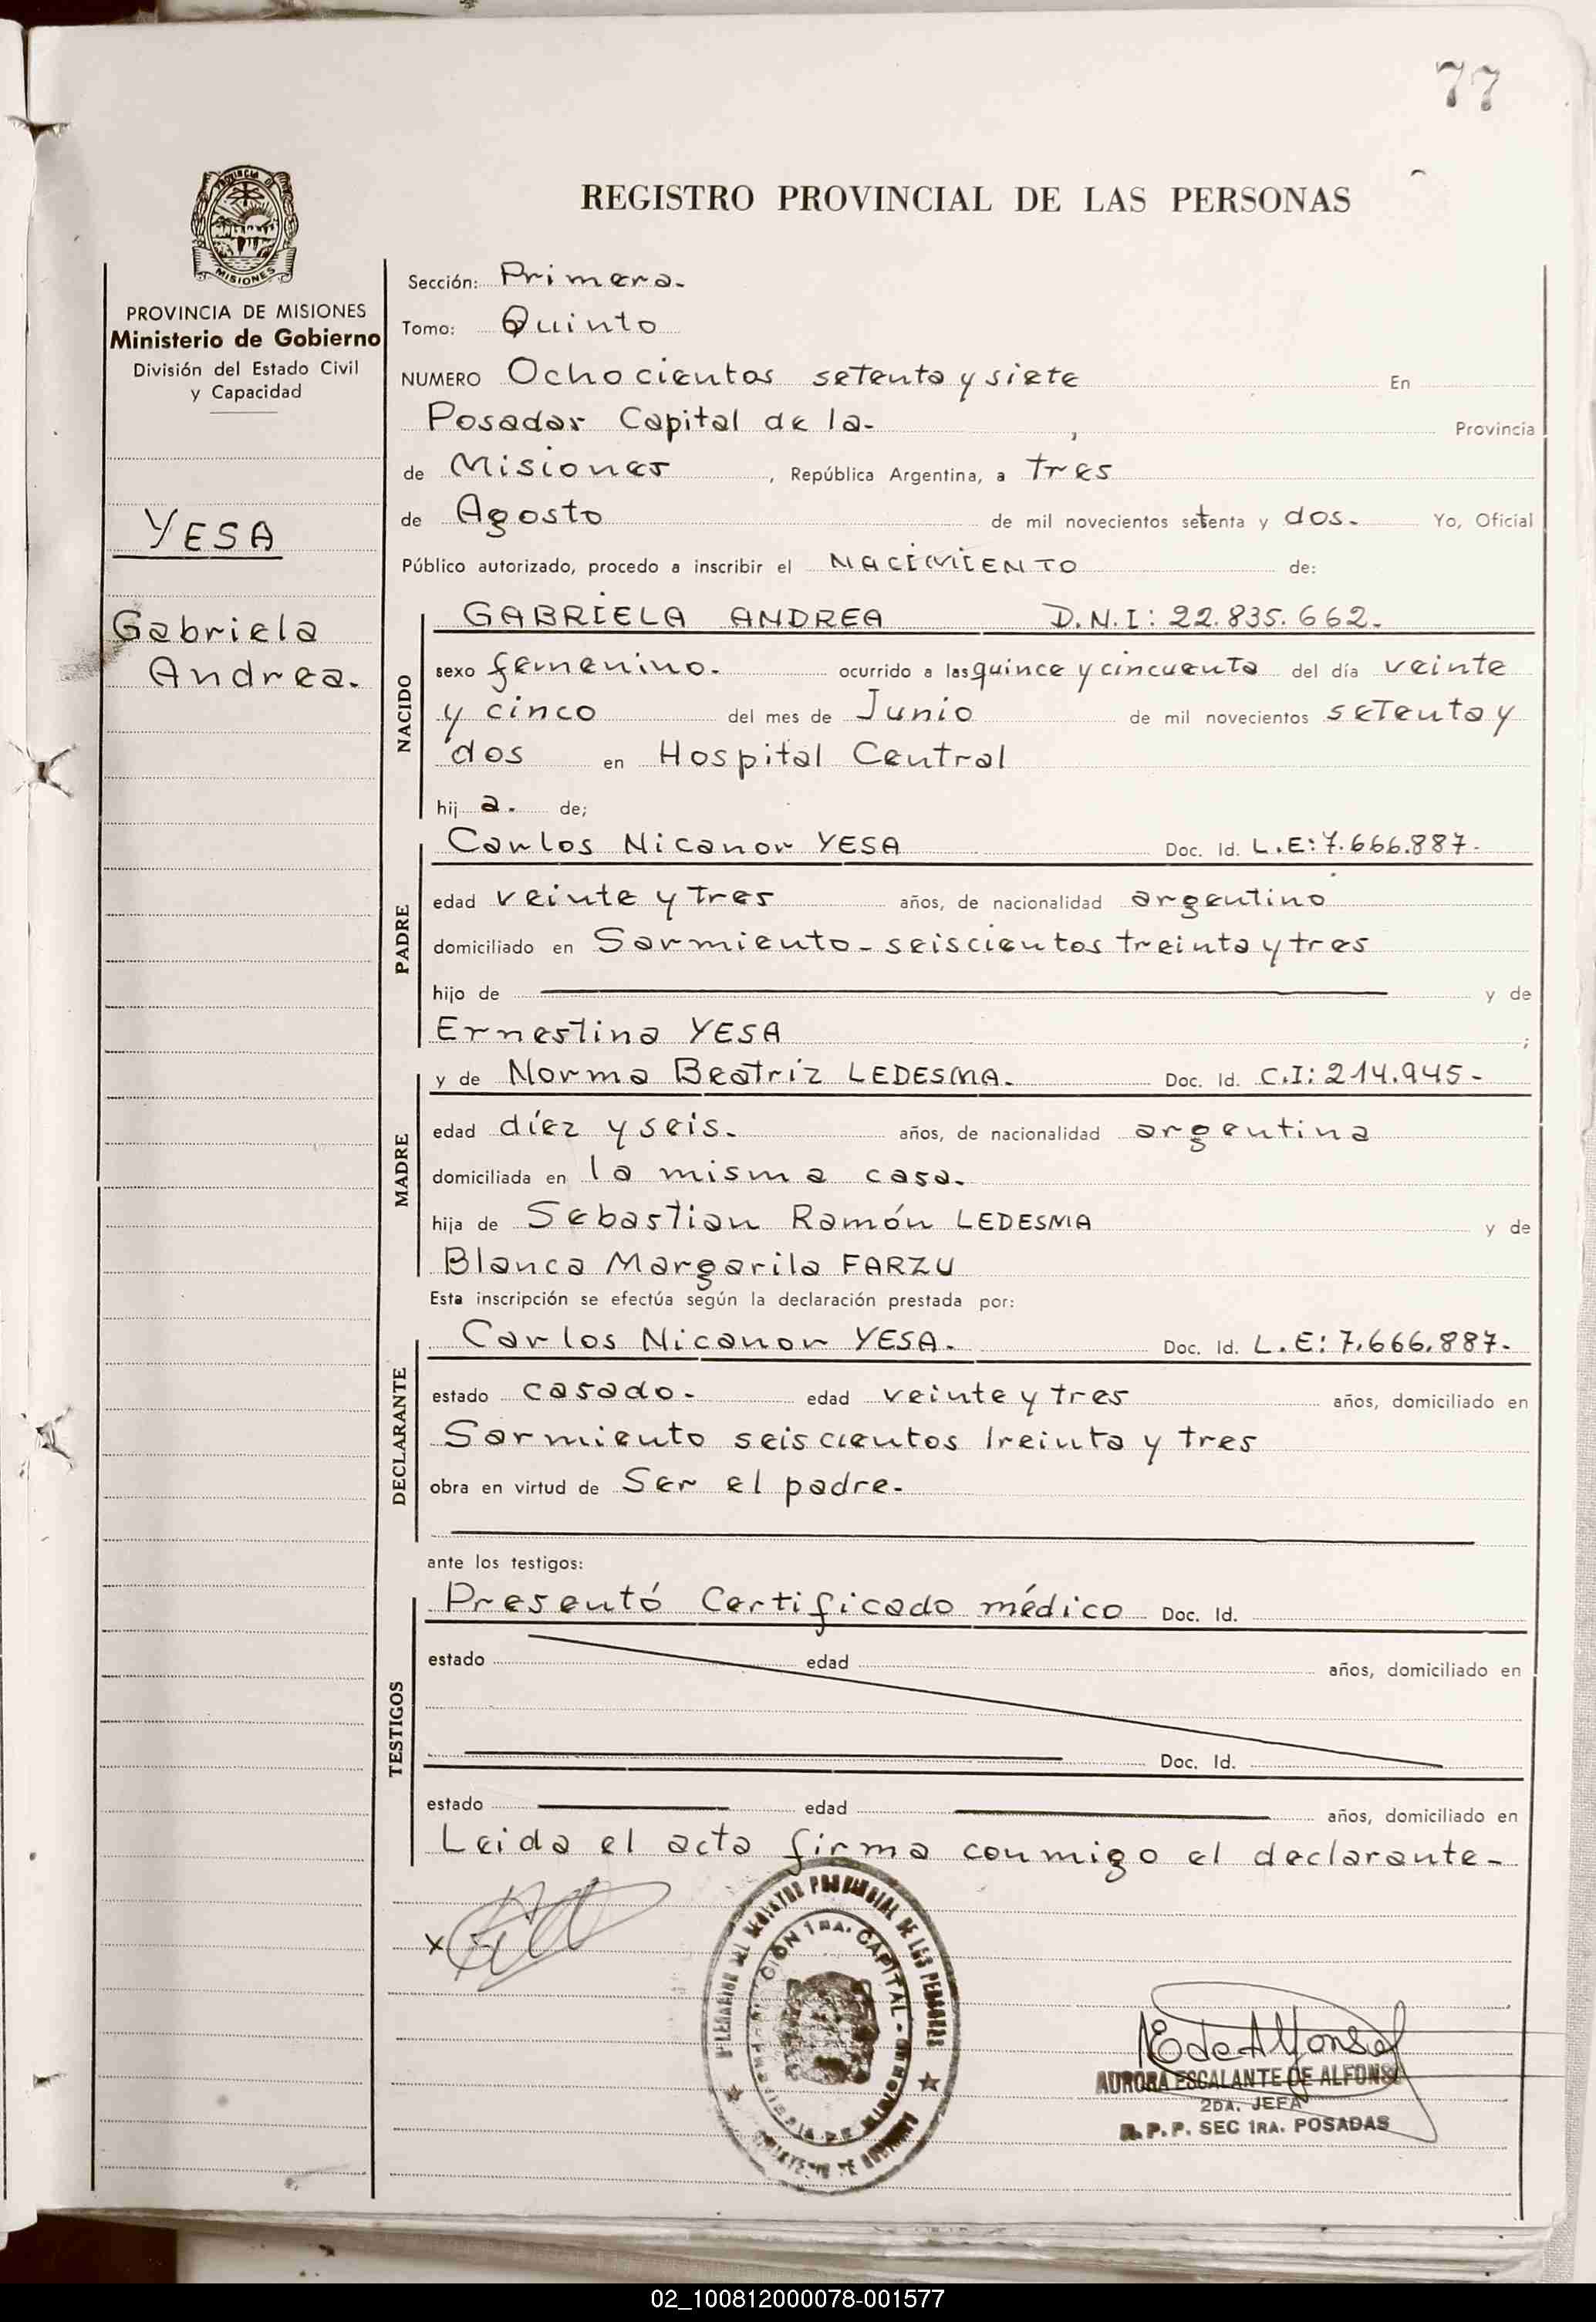 77
REGISTRO PROVINCIAL DE LAS PERSONAS
PROVINCIA DE
MISIONES
PROVINCIA DE MISIONES
Ministerio de Gobierno
División del Estado Civil
y Capacidad
YESA
Gabriela
Andrea.
Sección: Primera.
Tomo: Quinto
NUMERO Ochocientos setenta y siete En
Posadas Capital de la- , Provincia
de Misiones , República Argentina, a tres
de Agosto de mil novecientos setenta y dos. Yo, Oficial
Público autorizado, procedo a inscribir el NACIMIENTO de:
NACIDO
GABRIELA ANDREA D.N.I: 22.835.662.
sexo femenino. ocurrido a las quince y cincuenta del día veinte
y cinco del mes de Junio de mil novecientos setenta y
dos en Hospital Central
hij a. de;
PADRE
Carlos Nicanor YESA Doc. Id. L.E: 7.666.887-
edad veinte y tres años, de nacionalidad argentino
domiciliado en Sarmiento - seiscientos treinta y tres
hijo de y de
Ernestina YESA ;
MADRE
y de Norma Beatriz LEDESMA. Doc. Id. C.I: 214.945-
edad díez y seis. años, de nacionalidad argentina
domiciliada en la misma casa.
hija de Sebastian Ramón LEDESMA y de
Blanca Margarita FARZU
Esta inscripción se efectúa según la declaración prestada por:
DECLARANTE
Carlos Nicanor YESA. Doc. Id. L.E: 7.666.887-
estado casado- edad veinte y tres años, domiciliado en
Sarmiento seiscientos treinta y tres
obra en virtud de Ser el padre.
ante los testigos:
TESTIGOS
Presentó Certificado médico Doc. Id.
estado edad años, domiciliado en
Doc. Id.
estado edad años, domiciliado en
Leida el acta firma conmigo el declarante-
x
DEL REGISTRO PROVINCIAL DE LAS PERSONAS
1RA. CAPITAL
E de Alfonso
AURORA ESCALANTE DE ALFONSO
2DA. JEFA
R.P.P. SEC 1RA. POSADAS
02_100812000078-001577